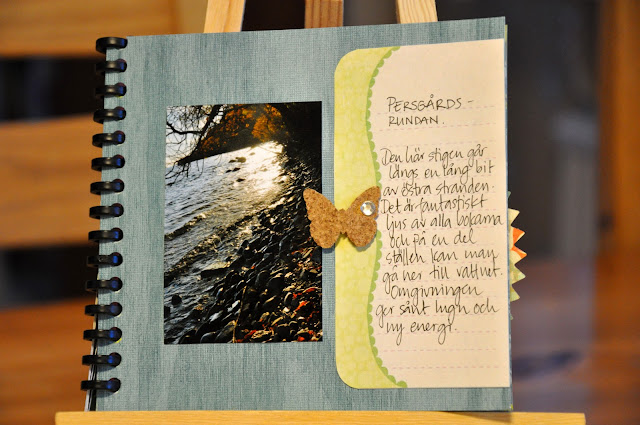 PERSGÅRDS-
RUNDAN
Den här stigen går
längs en lång bit
av östra stranden.
Det är fantastiskt
ljus av alla bokarna
och på en del
ställen kan man
gå ner till vattnet.
Omgivningen
ger sånt lugn och
ny energi.